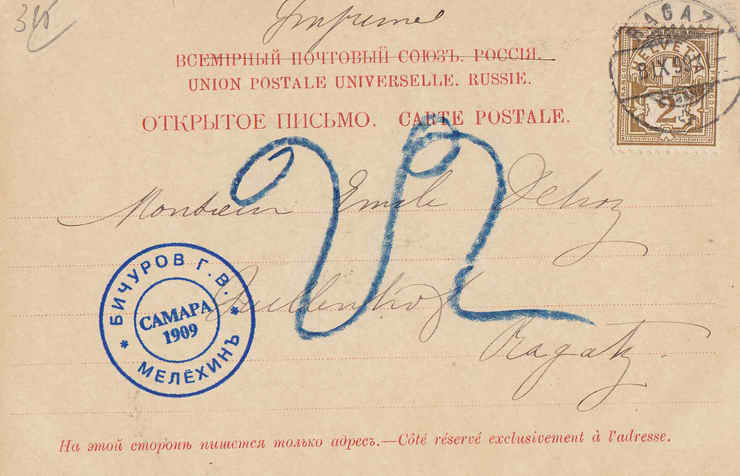 315
Imprimé
ВСЕМІРНЫЙ ПОЧТОВЫЙ СОЮЗЪ. РОССІЯ.
UNION POSTALE UNIVERSELLE. RUSSIE.
ОТКРЫТОЕ ПИСЬМО. CARTE POSTALE.
RAGAZ
HELVETIA
2
Monsieur Emile
Ragatz
БИЧУРОВ Г. В.
САМАРА
1909
МЕЛЁХИНЪ
На этой сторонѣ пишется только адресъ.—Côté réservé exclusivement à l'adresse.